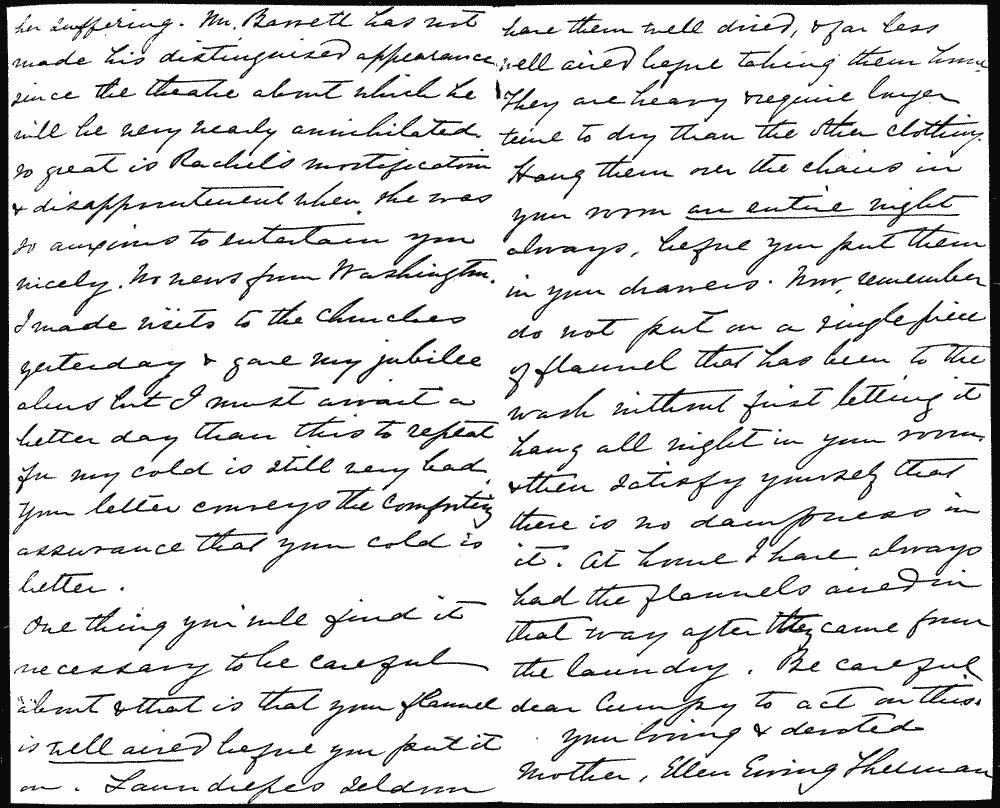 her suffering. Mr. Barrett has not
made his distinguised appearance
since the theatre about which he
will be very nearly annihilated
so great is Rachel's mortification
& disappointement when she was
so anxious to entertain you
nicely. No news from Washington.
I made visits to the Churches
yesterday & gave my jubilee
alms but I must await a
better day than this to repeat
for my cold is still very bad.
Your letter conveys the comforting
assurance that your cold is
better.
One thing you will find it
necessary to be careful
about & that is that your flannel
is well aired before you put it
on. Laundresses seldom
have them well dried, & far less
well aired before taking them home.
They are heavy & require longer
time to dry than the other clothing.
Hang them over the chairs in
your room an entire night
always, before you put them
in your drawers. Now, remember
do not put on a single piece
of flannel that has been to the
wash without first letting it
hang all night in your room,
& then satisfy yourself that
there is no dampness in
it. At home I have always
had the flannels aired in
that way after they came from
the laundry. Be careful
dear Cumpy to act on this.
your loving & devoted
Mother, Ellen Ewing Sherman